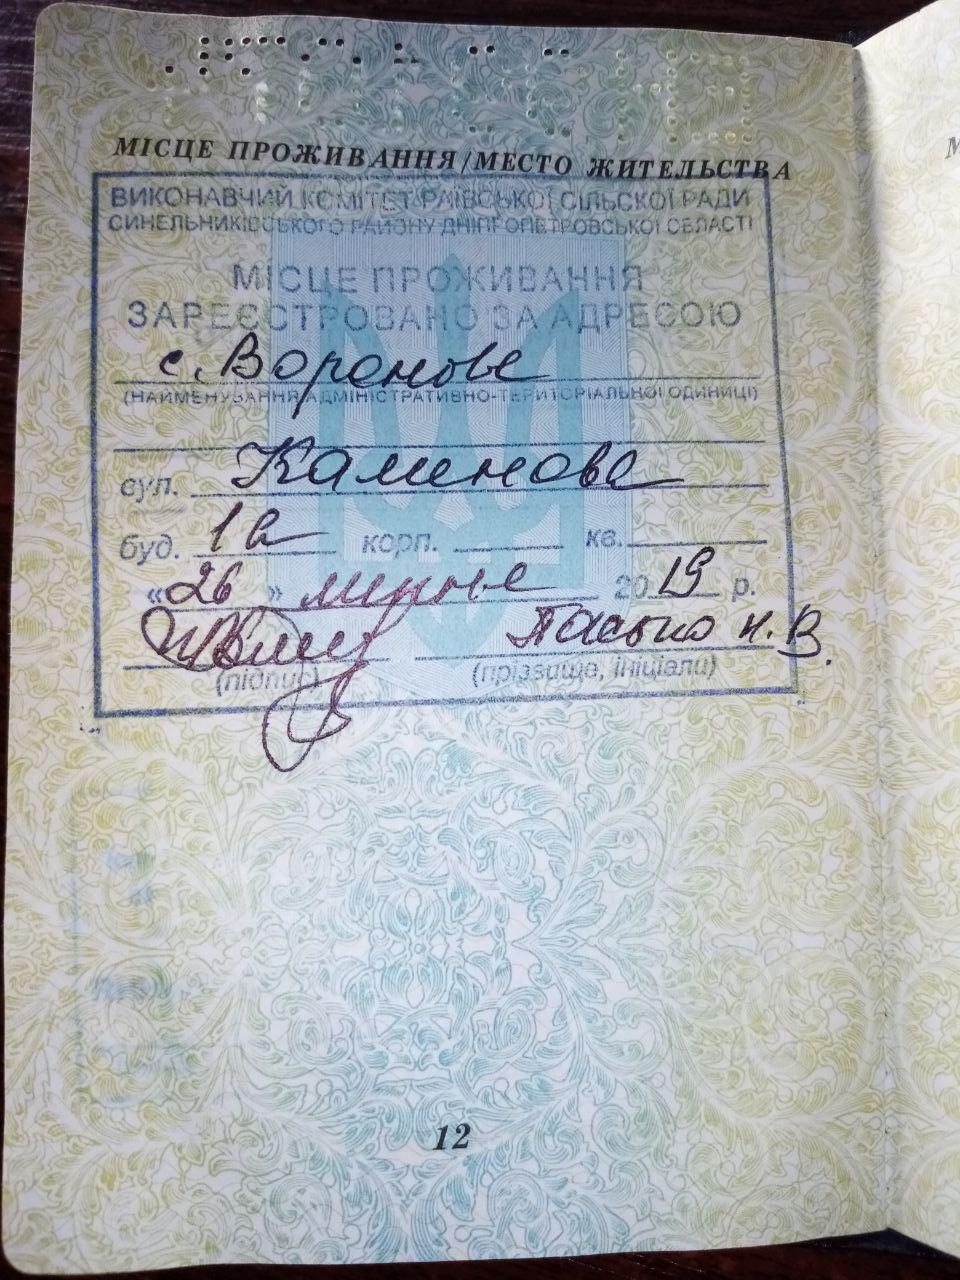 МІСЦЕ ПРОЖИВАННЯ/МЕСТО ЖИТЕЛЬСТВА
ВИКОНАВЧИЙ КОМІТЕТ РАЇВСЬКОЇ СІЛЬСКОЇ РАДИ
СИНЕЛЬНИКІВСЬКОГО РАЙОНУ ДНІПРОПЕТРОВСЬКОЇ ОБЛАСТІ
МІСЦЕ ПРОЖИВАННЯ
ЗАРЕЄСТРОВАНО ЗА АДРЕСОЮ
с. Воронове
(НАЙМЕНУВАННЯ АДМІНІСТРАТИВНО-ТЕРИТОРІАЛЬНОЇ ОДИНИЦІ)
вул. Каменова
буд. 1а корп. кв.
«26» липня 2019 р.
Пасько Н.В.
(підпис) (прізвище, ініціали)
12